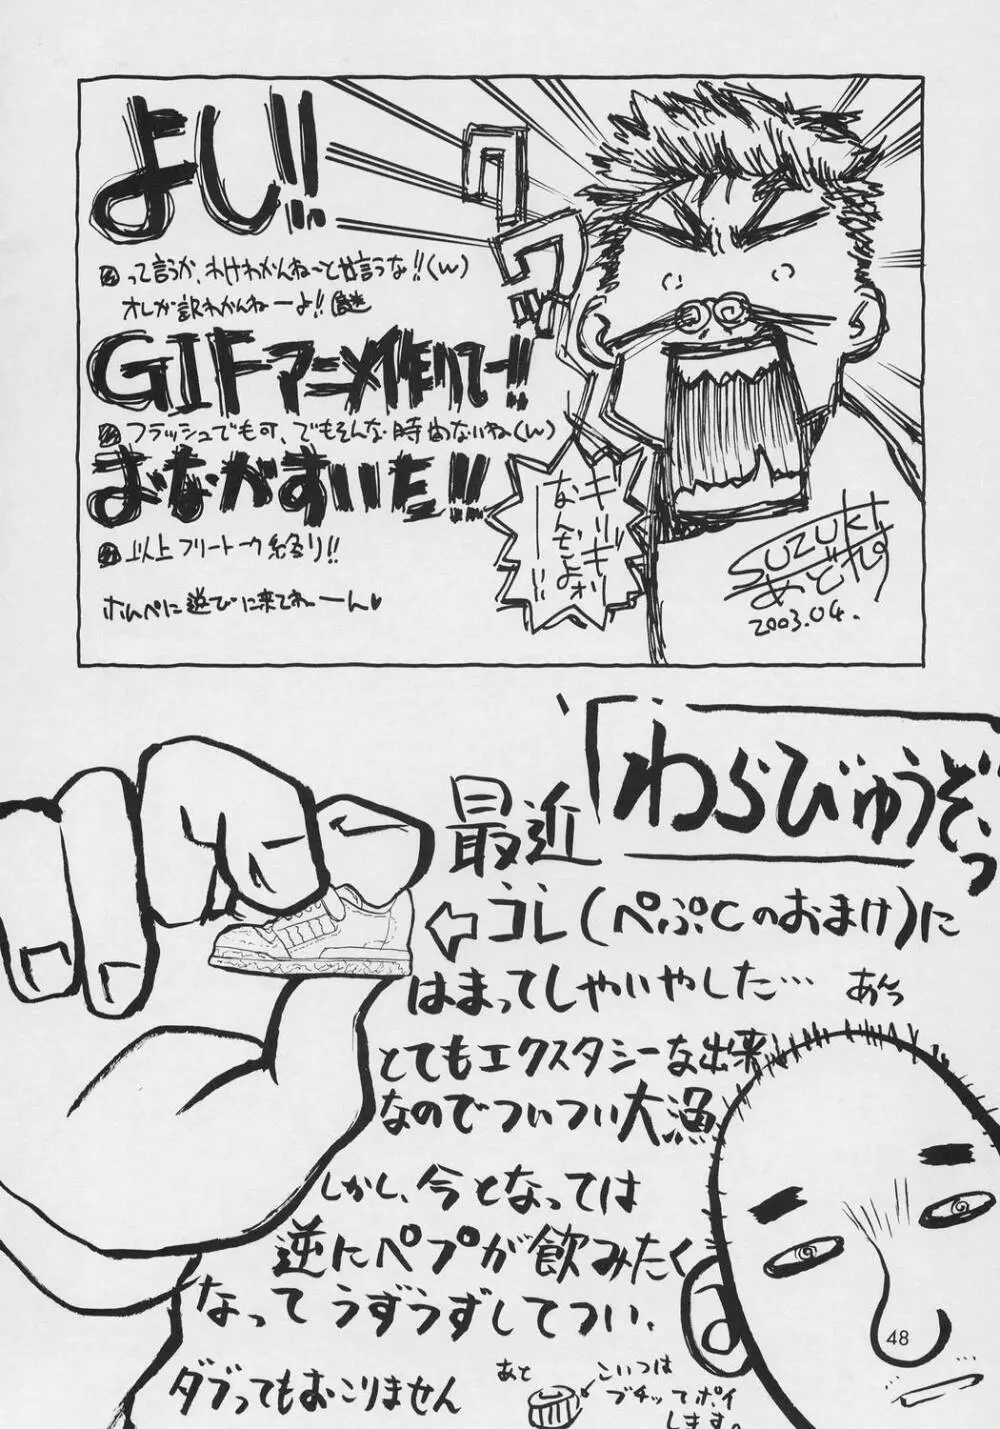 よし!!
って言うか、わけわかんねーとは言うな!!(w)
オレが訳わかんねーよ!!謎
GIFアニメ作りてー!!
フラッシュでも可、でもそんな時間ないね(w)
おなかすいた!!!
以上フリートーク終り!!
ホムペに遊びに来てねーーん♥
ワワ!!
キーッ
なんだよォ
ーー!!
SUZUKI
あどれす
2003.04.
「わらびゅうぞっ
最近
コレ(ぺぷCのおまけ)に
はまってしやいやした…
あんっ
とてもエクスタシーな出来
なのでついつい大漁
しかし、今となっては
逆にペプが飲みたく
なって うずうずしてつい、
ダブってもおこりません
あと
こいつは
ブチッてポイ
します。
48